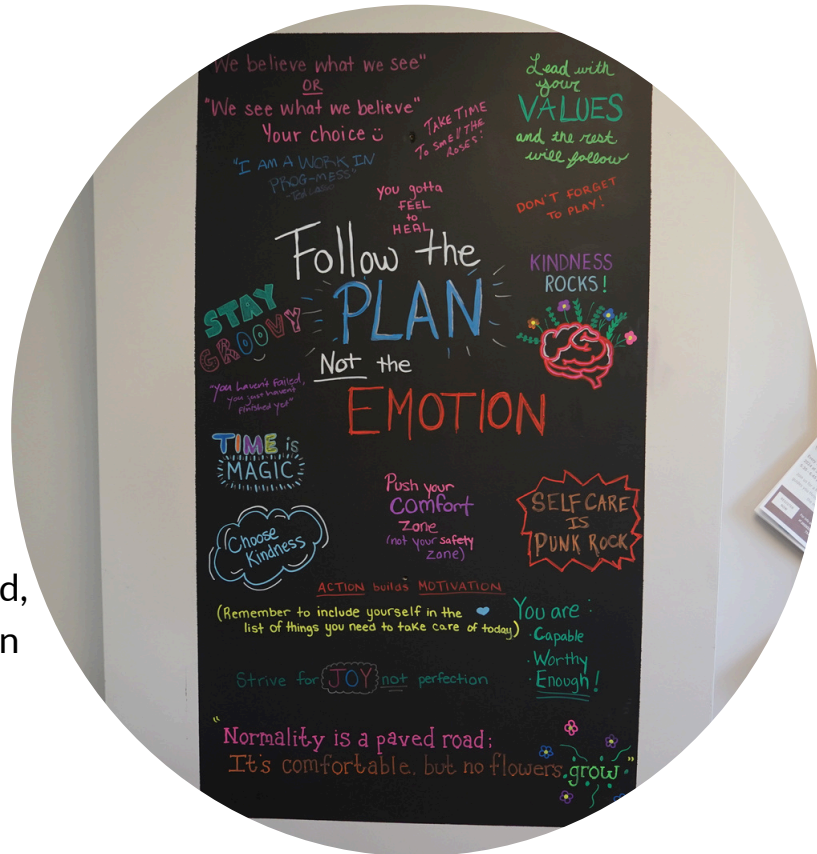 We believe what we see"
OR
"We see what we believe"
Your choice
TAKE TIME
To SmEll THE
ROSES!
Lead with
your
VALUES
and the rest
will follow
"I AM A WORK IN
PROG-MESS"
-Ted Lasso
you gotta
FEEL
to
HEAL
DON'T FORGET
TO PLAY!
Follow the
PLAN
Not the
EMOTION
KINDNESS
ROCKS!
STAY
GROOVY
"You haven't failed,
you just haven't
finished yet"
TIME is
MAGIC
Choose
Kindness
Push your
Comfort
Zone
(not your safety
zone)
SELF CARE
IS
PUNK ROCK
ACTION builds MOTIVATION
(Remember to include yourself in the
list of things you need to take care of today)
You are:
· Capable
· Worthy
· Enough!
Strive for JOY not perfection
"Normality is a paved road:
It's comfortable. but no flowers grow"
d,
n